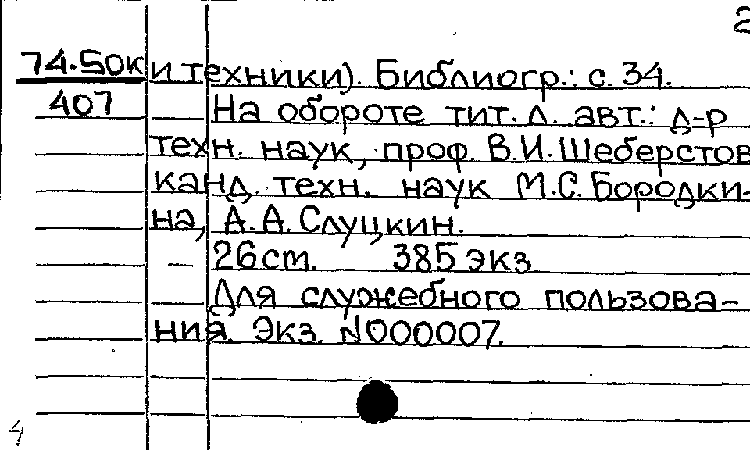 2
74.50к и техники). Библиогр.: с. 34.
407 На обороте тит. л. авт.: д-р
техн. наук, проф. В.И. Шеберстов
канд. техн. наук М.С. Бородки-
на, А.А. Слуцкин.
26 ст. 385 экз.
Для служебного пользова-
ния. Экз. N000007.
4